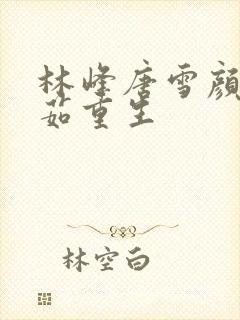 林峰唐雪顏
茹重生
林空白